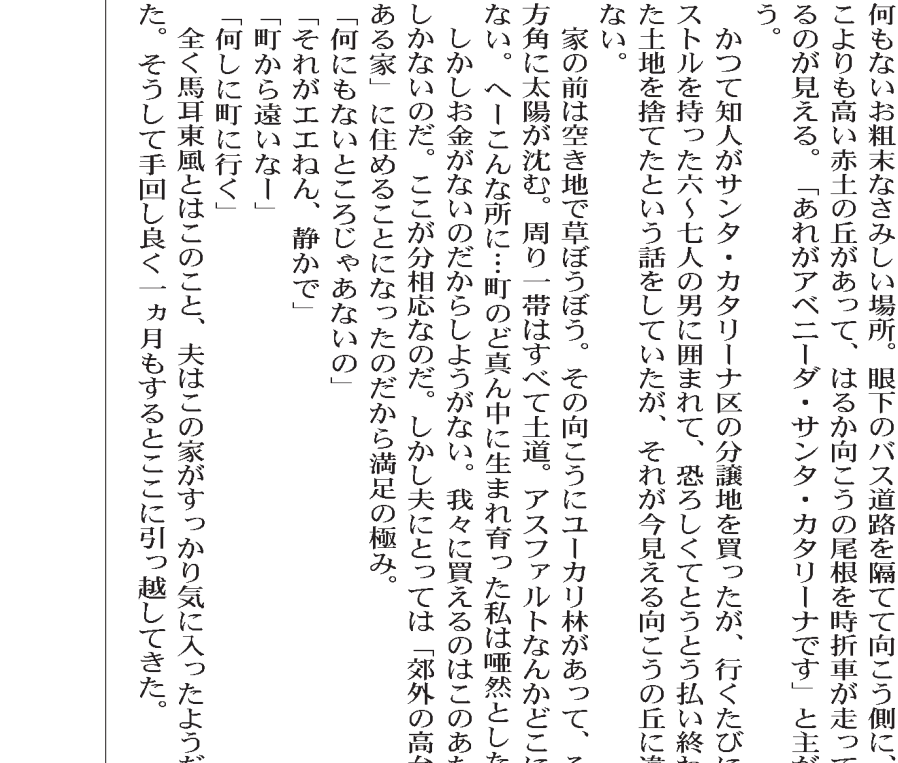 何もないお粗末なさみしい場所。眼下のバス道路を隔てて向こう側に、
こよりも高い赤土の丘があって、はるか向こうの尾根を時折車が走って
るのが見える。「あれがアベニーダ・サンタ・カタリーナです」と主が
う。
かつて知人がサンタ・カタリーナ区の分譲地を買ったが、行くたびに
ストルを持った六〜七人の男に囲まれて、恐ろしくてとうとう払い終わ
た土地を捨てたという話をしていたが、それが今見える向こうの丘に違
ない。
家の前は空き地で草ぼうぼう。その向こうにユーカリ林があって、そ
方角に太陽が沈む。周り一帯はすべて土道。アスファルトなんかどこに
ない。へーこんな所に…町のど真ん中に生まれ育った私は唖然とした
しかしお金がないのだからしようがない。我々に買えるのはこのあた
しかないのだ。ここが分相応なのだ。しかし夫にとっては「郊外の高台
ある家」に住めることになったのだから満足の極み。
「何にもないところじゃあないの」
「それがエエねん、静かで」
「町から遠いなー」
「何しに町に行く」
全く馬耳東風とはこのこと、夫はこの家がすっかり気に入ったようだ
た。そうして手回し良く一ヵ月もするとここに引っ越してきた。